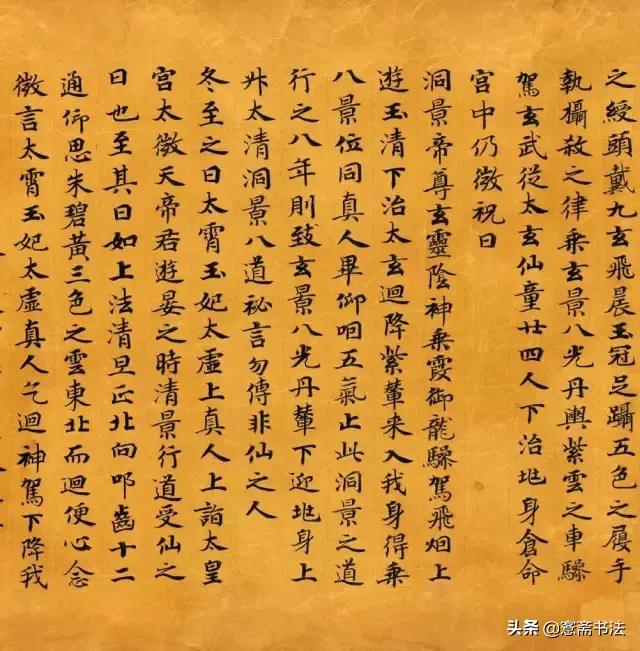 之綬頭戴九玄飛晨玉冠足躡五色之履手
執攝赦之律乘玄景八光丹輿紫雲之車驂
駕玄武從太玄仙童廿四人下治兆身倉命
宮中仍微祝曰
洞景帝尊玄靈陰神乘霞御龍驂駕飛烟上
遊玉清下治太玄迴降紫輦来入我身得乘
八景位同真人畢仰咽五氣止此洞景之道
行之八年則致玄景八光丹輦下迎兆身上
升太清洞景八道祕言勿傳非仙之人
冬至之日太霄玉妃太虛上真人上詣太皇
宮太微天帝君遊宴之時清景行道受仙之
日也至其日如上法清旦正北向叩齒十二
通仰思朱碧黃三色之雲東北而迴便心念
微言太霄玉妃太虛真人乞迴神駕下降我
头条 @愙斋书法